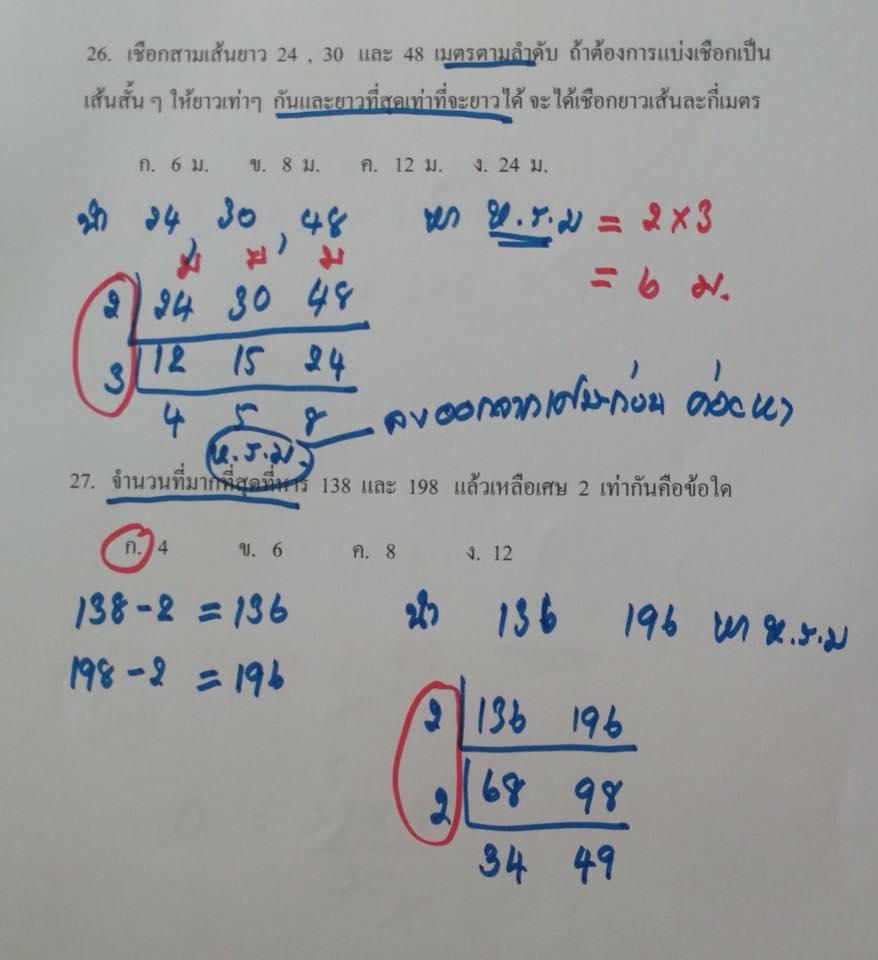 26. เชือกสามเส้นยาว 24 , 30 และ 48 เมตรตามลำดับ ถ้าต้องการแบ่งเชือกเป็น
เส้นสั้น ๆ ให้ยาวเท่าๆ กันและยาวที่สุดเท่าที่จะยาวได้ จะได้เชือกยาวเส้นละกี่เมตร
ก. 6 ม. ข. 8 ม. ค. 12 ม. ง. 24 ม.
นำ 24, 30, 48 หา ห.ร.ม = 2 × 3
= 6 ม.
ม ม ม
2 24 30 48
3 12 15 24
4 5 8
ห.ร.ม.
27. จำนวนที่มากที่สุดที่หาร 138 และ 198 แล้วเหลือเศษ 2 เท่ากันคือข้อใด
ก. 4 ข. 6 ค. 8 ง. 12
138 - 2 = 136 นำ 136 196 หา ห.ร.ม
198 - 2 = 196
2 136 196
2 68 98
34 49